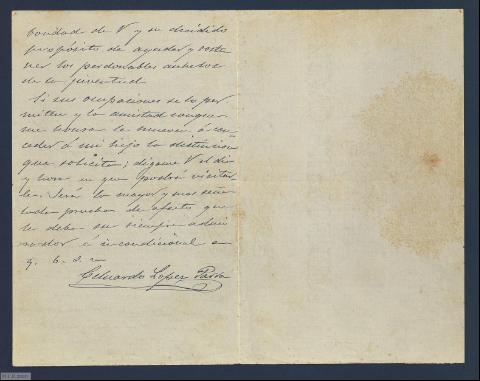 bondad de V y su decidido
propósito de ayudar y soste
ner los perdonables anhelos
de la juventud.
Si sus ocupaciones se lo per
miten y la amistad conque
me honra le mueve á con
ceder á mi hijo la distincion
que solicita; digame V el dia
y hora en que podrá visitar
le. Será la mayor y mas seña
lada prueba de afecto que
le debe su siempre admi
rador é incondicional a
q. b. s. m
Eduardo Lopez